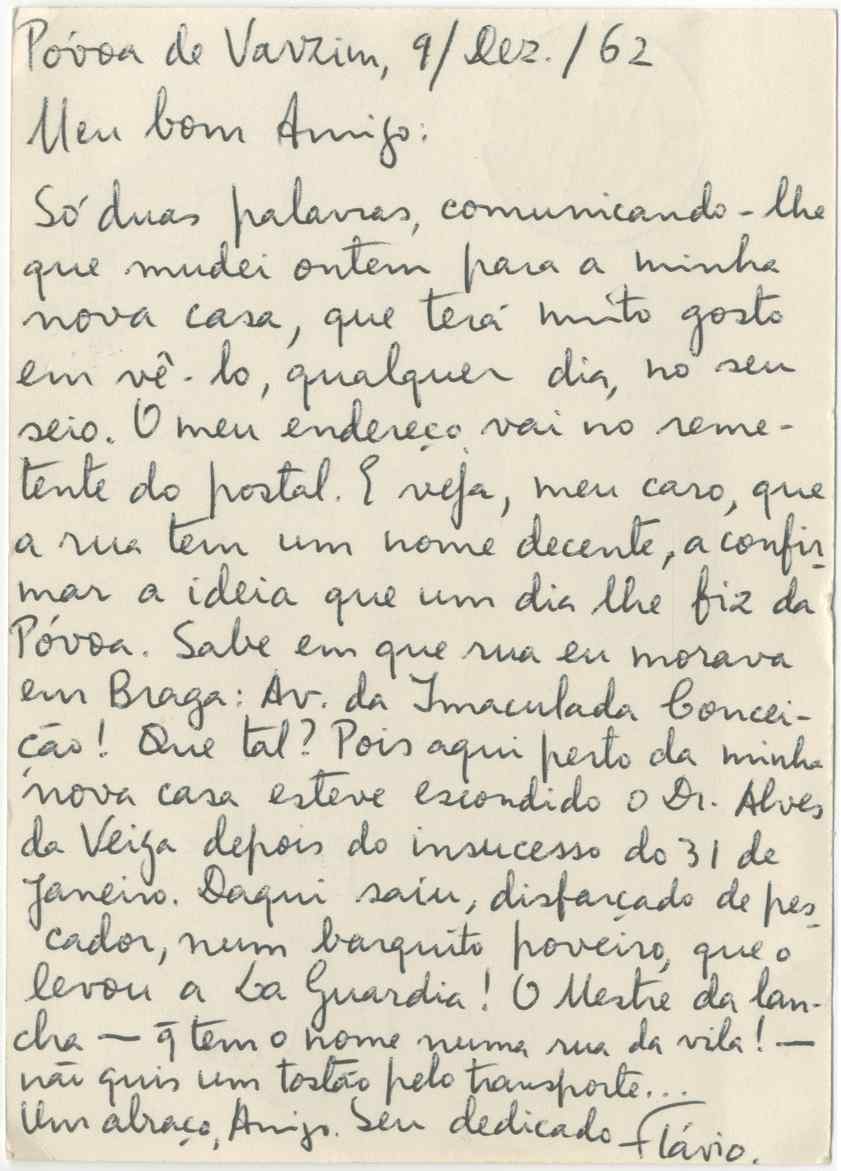 Póvoa de Varzim, 9/Dez./62
Meu bom Amigo:
Só duas palavras, comunicando-lhe
que mudei ontem para a minha
nova casa, que terá muito gosto
em vê-lo, qualquer dia, no seu
seio. O meu endereço vai no reme-
tente do postal. E veja, meu caro, que
a rua tem um nome decente, a confir-
mar a ideia que um dia lhe fiz da
Póvoa. Sabe em que rua eu morava
em Braga: Av. da Imaculada Concei-
ção! Que tal? Pois aqui perto da minha
nova casa esteve escondido o Dr. Alves
da Veiga depois do insucesso do 31 de
Janeiro. Daqui saíu, disfarçado de pes-
cador, num barquito poveiro, que o
levou a La Guardia! O Mestre da lan-
cha — q̄ tem o nome numa rua da vila! —
não quis um tostão pelo transporte...
Um abraço, Amigo. Seu dedicado Flávio.